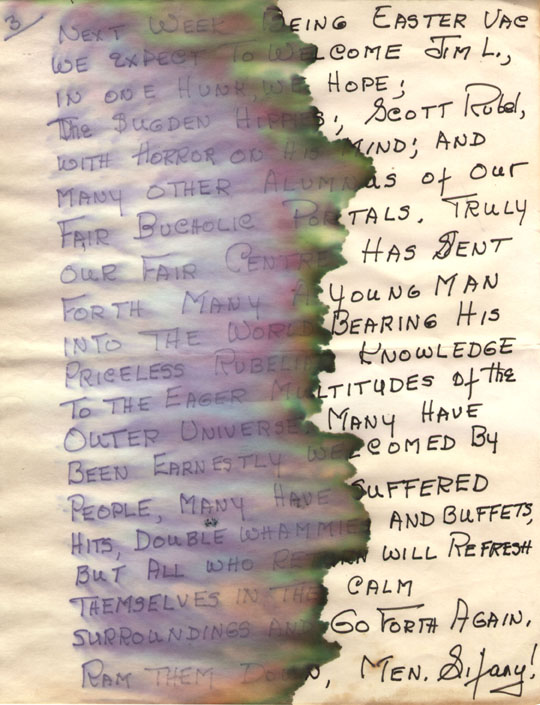 3
NEXT WEEK BEING EASTER VAC
WE EXPECT TO WELCOME JIM L.,
IN ONE HUNK, WE HOPE;
The BUGDEN HIPPIES; SCOTT Rubel,
WITH HORROR ON HIS MIND; AND
MANY OTHER ALUMNAS of Our
FAIR BUCHOLIC PORTALS. TRULY
OUR FAIR CENTRE HAS SENT
FORTH MANY A YOUNG MAN
INTO THE WORLD BEARING HIS
PRICELESS RUBELIAN KNOWLEDGE
TO THE EAGER MULTITUDES Of the
OUTER UNIVERSE. MANY HAVE
BEEN EARNESTLY WELCOMED By
PEOPLE, MANY HAVE SUFFERED
HITS, DOUBLE WHAMMIES AND BUFFETS,
BUT ALL WHO RETURN WILL REFRESH
THEMSELVES IN THE CALM
SURROUNDINGS AND GO FORTH AGAIN.
RAM THEM DOWN, MEN.